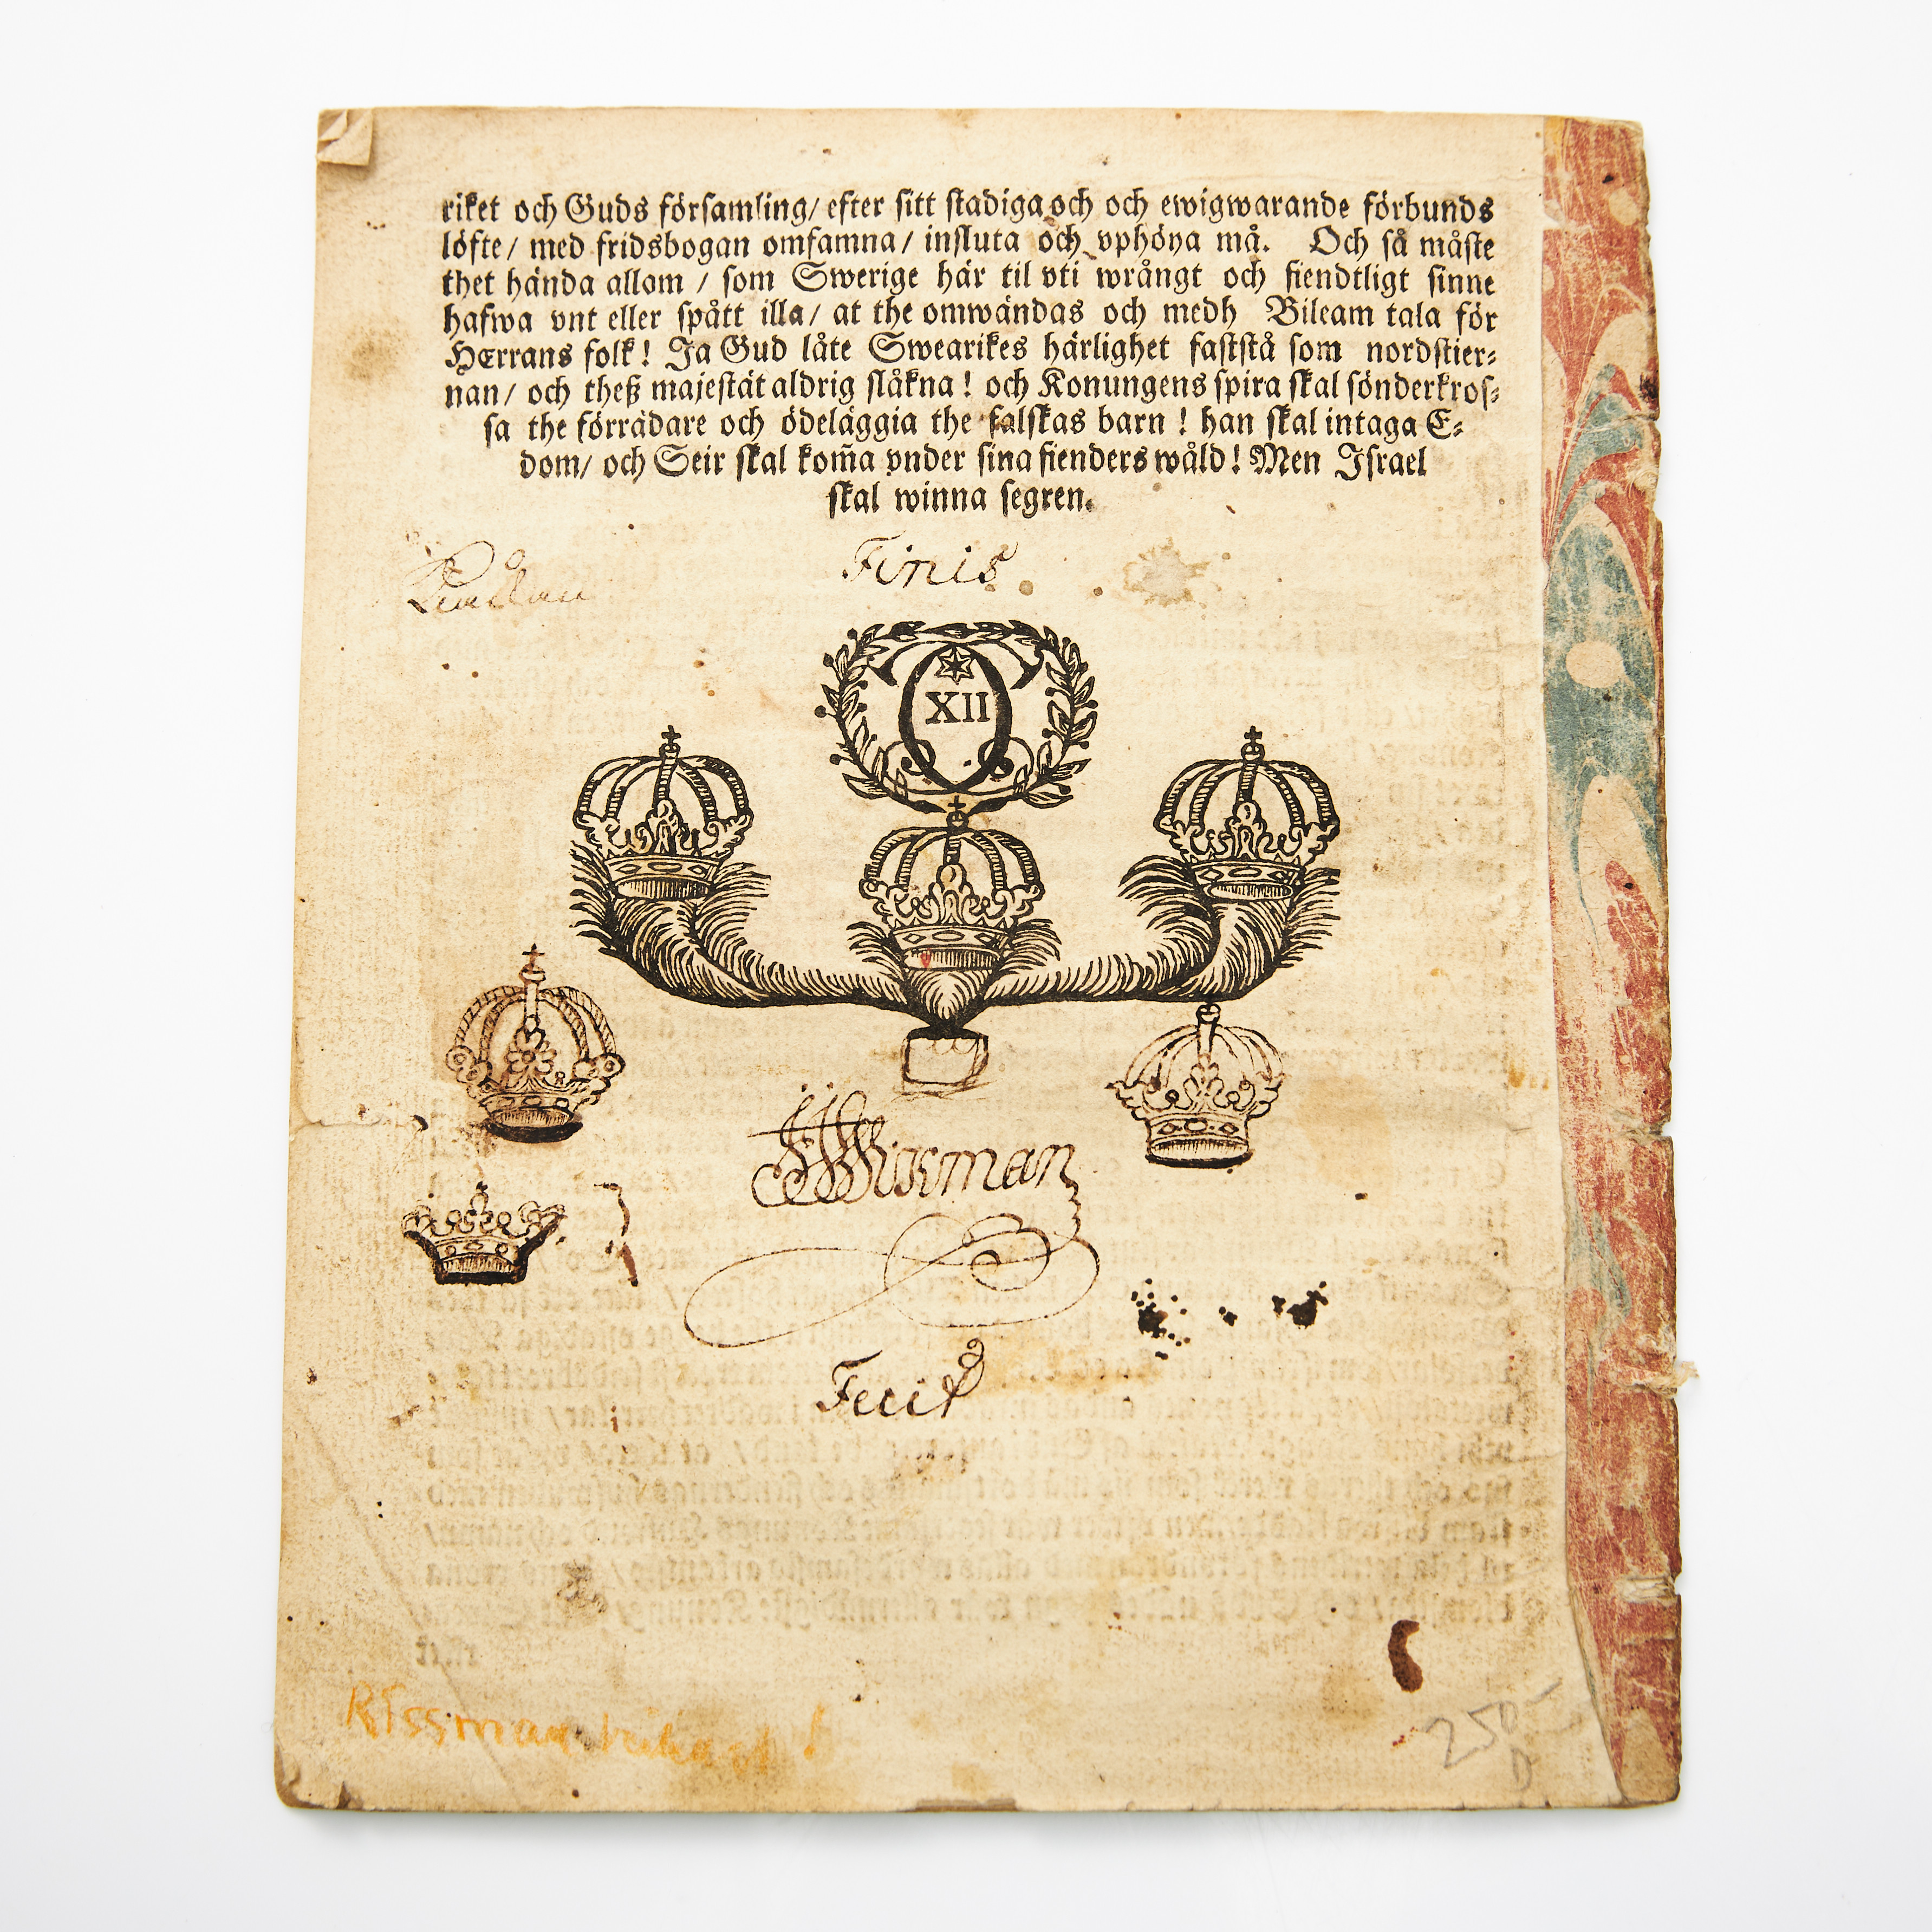 riket och Guds församling/ efter sitt stadiga och och ewigwarande förbunds
löfte/ med fridsbogan omfamna/ insluta och vphöya må. Och så måste
thet hända allom / som Swerige här til vti wrångt och fiendtligt sinne
hafwa vnt eller spått illa/ at the omwändas och medh Bileam tala för
HErrans folk! Ja Gud låte Swearikes härlighet faststå som nordstier⸗
nan/ och theß majestät aldrig slåkna! och Konungens spira skal sönderkros⸗
sa the förrädare och ödeläggia the falskas barn! han skal intaga E⸗
dom/ och Seir skal kom̃a vnder sina fienders wåld! Men Israel
skal winna segren.
Finis
XII
Wisman
Fecit
Rissman
250